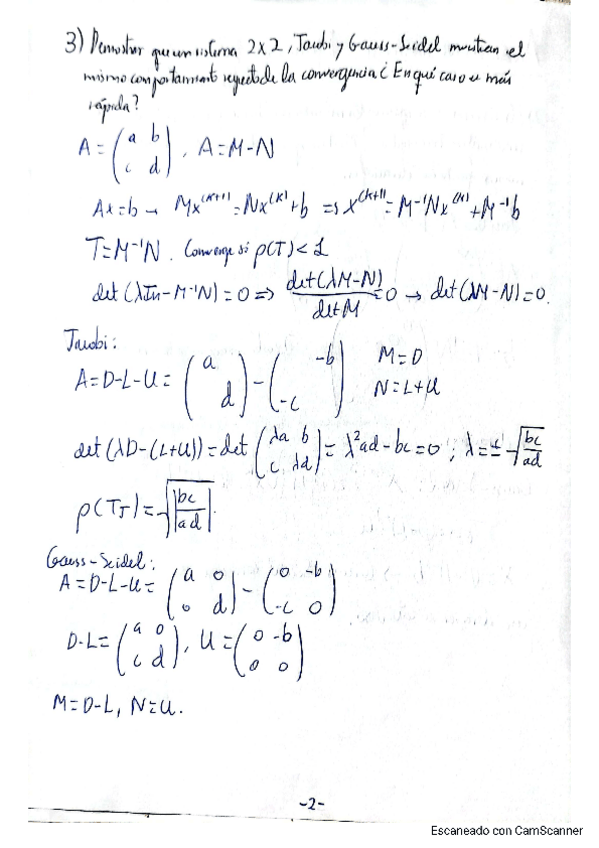 3) Demostrar que un sistema 2x2, Jacobi y Gauss-Seidel muestran el
mismo comportamiento respecto de la convergencia ¿En qué caso es más
rápida?
A = (a b; c d), A = M-N
Ax=b → Mx^(k+1) = Nx^(k) + b ⇒ x^(k+1) = M⁻¹Nx^(k) + M⁻¹b
T = M⁻¹N. Converge si ρ(T) < 1
det(λIn - M⁻¹N) = 0 ⇒ det(λM-N)/det M = 0 → det(λM-N) = 0.
Jacobi:
A = D-L-U = (a ; d) - ( -b; -c ) M = D
N = L+U
det(λD-(L+U)) = det(λa b; c λd) = λ²ad - bc = 0; λ = ±√(bc/ad)
ρ(TJ) = √|bc/ad|.
Gauss-Seidel:
A = D-L-U = (a 0; 0 d) - (0 -b; -c 0)
D-L = (a 0; c d), U = (0 -b; 0 0)
M = D-L, N = U.
-2-
Escaneado con CamScanner